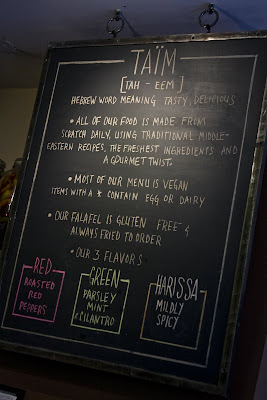 TAÏM
[TAH - EEM]
HEBREW WORD MEANING TASTY, DELICIOUS
• ALL OF OUR FOOD IS MADE FROM
SCRATCH DAILY, USING TRADITIONAL MIDDLE-
EASTERN RECIPES, THE FRESHEST INGREDIENTS AND
A GOURMET TWIST.
• MOST OF OUR MENU IS VEGAN
ITEMS WITH A * CONTAIN EGG OR DAIRY
• OUR FALAFEL IS GLUTEN FREE &
ALWAYS FRIED TO ORDER
• OUR 3 FLAVORS
RED
ROASTED
RED
PEPPERS
GREEN
PARSLEY
MINT
& CILANTRO
HARISSA
MILDLY
SPICY